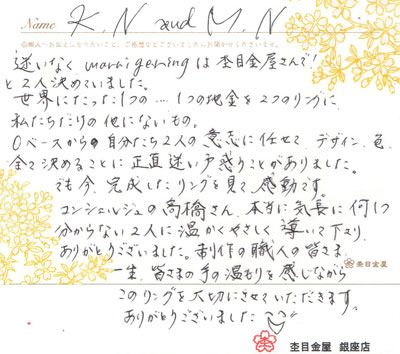 Name K.N and M.N
◎職人へお伝えしたいこと、ご感想などございましたらお聞かせくださいませ。
迷いなく marrigeringは杢目金屋さんで!
と2人決めていました。
世界にたった1つの…1つの地金を2つのリングに
私たちだけの他にないもの。
0ベースから自分たち2人の意志に任せて デザイン、色
全て決めることに正直迷い戸惑うことがありました。
でも今、完成したリングを見て感動です。
コンシェルジュの高橋さん、本当に気長に何1つ
分からない2人に温かくやさしく導いて下さり
ありがとうございました。制作の職人の皆さま
杢目金屋
一生、皆さまの手の温もりを感じながら
このリングを大切にさせていただきます。
ありがとうございました
杢目金屋 銀座店